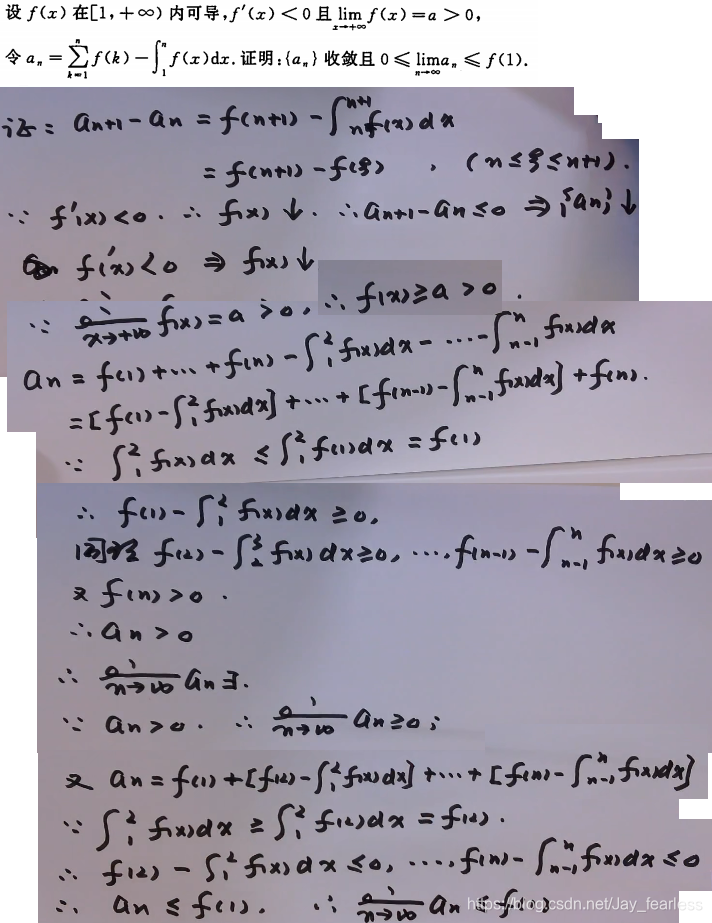 设 f(x) 在 [1, +∞) 内可导, f′(x) < 0 且 lim_{x→+∞} f(x) = a > 0,
令 a_n = ∑_{k=1}^{n} f(k) − ∫_1^n f(x)dx. 证明: {a_n} 收敛且 0 ≤ lim_{n→∞} a_n ≤ f(1).
证: a_{n+1} − a_n = f(n+1) − ∫_n^{n+1} f(x)dx
= f(n+1) − f(ξ) , (n ≤ ξ ≤ n+1).
∵ f′(x) < 0. ∴ f(x)↓. ∴ a_{n+1} − a_n ≤ 0 ⇒ {a_n}↓
f′(x) < 0 ⇒ f(x)↓
∵ lim_{x→+∞} f(x) = a > 0, ∴ f(x) ≥ a > 0.
a_n = f(1) + ⋯ + f(n) − ∫_1^2 f(x)dx − ⋯ − ∫_{n-1}^n f(x)dx
= [f(1) − ∫_1^2 f(x)dx] + ⋯ + [f(n-1) − ∫_{n-1}^n f(x)dx] + f(n).
∵ ∫_1^2 f(x)dx ≤ ∫_1^2 f(1)dx = f(1)
∴ f(1) − ∫_1^2 f(x)dx ≥ 0,
同理 f(2) − ∫_2^3 f(x)dx ≥ 0, ⋯, f(n-1) − ∫_{n-1}^n f(x)dx ≥ 0
又 f(n) > 0.
∴ a_n > 0
∴ lim_{n→∞} a_n ∃.
∵ a_n > 0. ∴ lim_{n→∞} a_n ≥ 0;
又 a_n = f(1) + [f(2) − ∫_1^2 f(x)dx] + ⋯ + [f(n) − ∫_{n-1}^n f(x)dx]
∵ ∫_1^2 f(x)dx ≥ ∫_1^2 f(2)dx = f(2).
∴ f(2) − ∫_1^2 f(x)dx ≤ 0, ⋯, f(n) − ∫_{n-1}^n f(x)dx ≤ 0
∴ a_n ≤ f(1). ∴ lim_{n→∞} a_n ≤ f(1).
https://blog.csdn.net/Jay_fearless